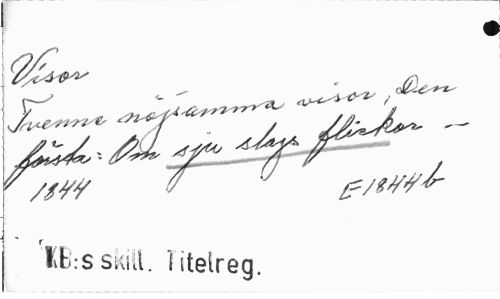 Visor
Tvenne nöjsamma visor, Den
första: Om sju slags flickor —
1844 E1844b
KB:s skill. Titelreg.